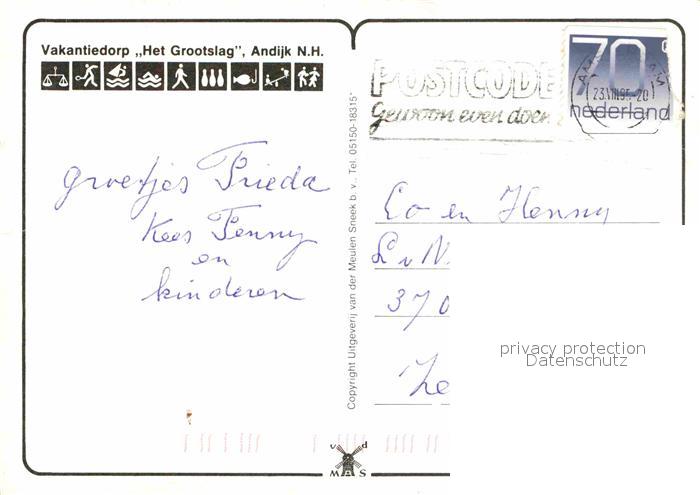 Vakantiedorp „Het Grootslag", Andijk N.H.
groetjes Frieda
Kees Penny
en
kinderen
Copyright Uitgeverij van der Meulen Sneek b.v., Tel. 05150-18315*
POSTCODE
Gewoon even doen
70
23.VIII.95.-20
nederland
Lo en Henny
L v N.
370
Ze
privacy protection
Datenschutz
v d
MAS